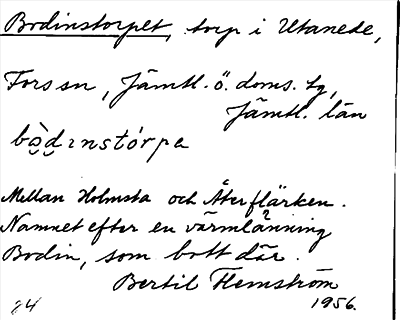 Bodinstorpet, torp i Utanede,
Fors sn, Jämtl. ö. doms. tg,
Jämtl. län
bòdinstórpa
Mellan Holmsta och Återflärken.
Namnet efter en värmlänning
Bodin, som bott där.
Bertil Flemström
24 1956.